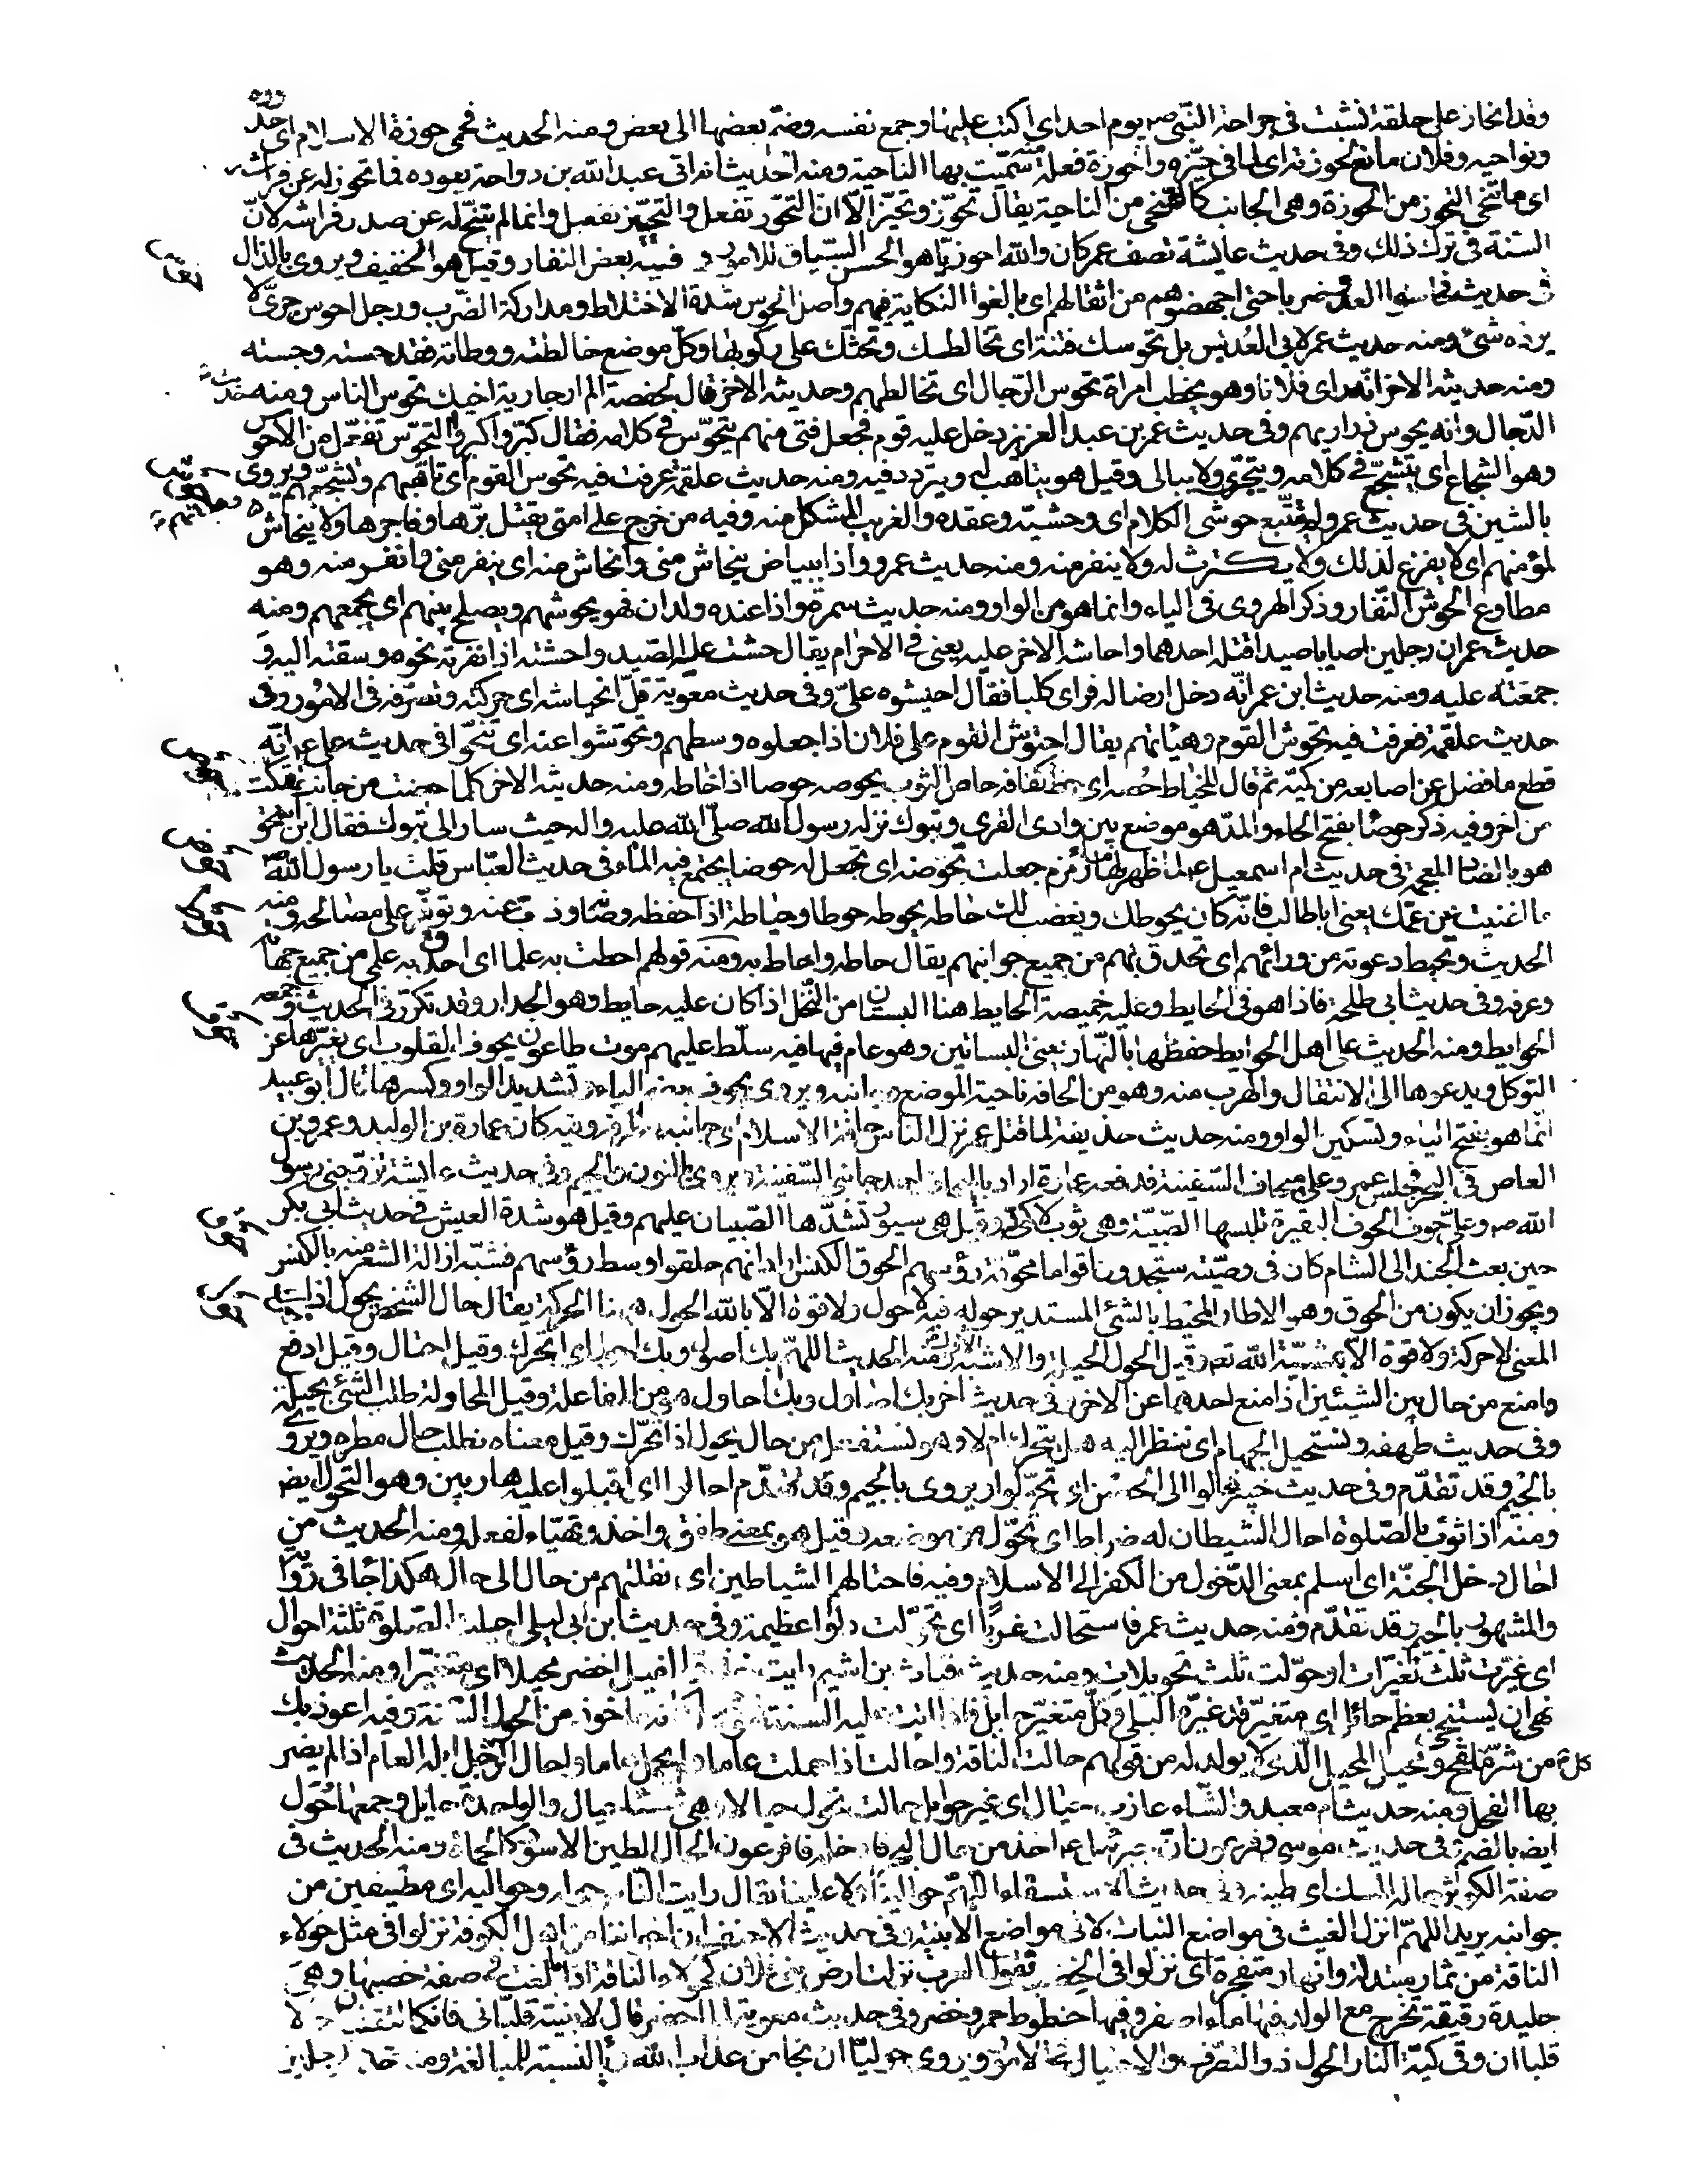 وقد انحاز على حلقة نشبت في جراحة النبي صم يوم احد اي اكتب عليها وجمع نفسه وضم بعضها الى بعض ومنه الحديث فحمى حوزة الاسلام اي حد
ونواحيه وفلان مانع لحوزته اي لما في حيزه والحوزة فعلة منه سميت بها الناحية ومنه الحديث انه اتى عبد الله بن رواحة يعوده فما تحوز له عن فراشه
اي ما تنحى التحوز من الحوزة وهي الجانب كالتنحي من الناحية يقال تحوز وتحيز الا ان التحوز تفعل والتحيز تفعيل وانما لم يتنح له عن صدر فراشه لان
السنة في ترك ذلك وفي حديث عايشة تصف عمر كان والله احوزيا هو الحسن السياق للامور وفيه بعض النفار وقيل هو الخفيف ويروى بالذال
في حديث فحاسوا العدو ضربا حتى اجهضوهم من اثقالهم اي بالغوا النكاية فيهم واصل الحوس شدة الاختلاط ومداركة الضرب ورجل احوس جرى لا
يرده شئ ومنه حديث عمر لابي العدبس بل تحوسك فتنة اي تخالطك وتحثك على ركوبها وكل موضع خالطته ووطئته فقد حسته وجسته
ومنه حديثه الاخر انه راى فلانا وهو يخطب امراة تحوس الرجال اي تخالطهم وحديثه الاخر قال لحفصة الم ار جارية اخيك تحوس الناس ومنه حديث
الدجال وانه يحوس ذراريهم وفي حديث عمر بن عبد العزيز دخل عليه قوم فجعل فتى منهم يتحوس في كلامه فقال كبروا كبروا التحوس تفعل من الاحوس
وهو الشجاع اي يتشجع في كلامه ويتجرى ولا يبالى وقيل هو يتاهب له ويتردد فيه ومنه حديث علقمة عرفت فيه تحوس القوم اي تاهبهم وتشجعهم ويروى
بالشين في حديث عمرو لم يتتبع حوشي الكلام اي وحشيه وعقده والغريب المشكل منه وفيه من خرج على امتي يقتل برها وفاجرها ولا ينحاش
لمؤمنهم اي لا يفزع لذلك ولا يكترث له ولا ينفر منه ومنه حديث عمرو واذا ببياض ينحاش مني وانحاش منه اي ينفر مني وانفر منه وهو
مطاوع الحوش النفار وذكر الهروى في الياء وانما هو من الواو ومنه حديث سمرة واذا عنده ولدان فهو يحوشهم ويصلح بينهم اي يجمعهم ومنه
حديث عمر ان رجلين اصابا صيدا قتله احدهما واحاشه الاخر عليه يعني في الاحرام يقال حشت عليه الصيد واحشته اذا نفرته نحوه وسقته اليه و
جمعته عليه ومنه حديث ابن عمر انه دخل ارضا له فراى كلبا فقال احيشوه على وفي حديث معوية قل انحياشه اي حركته وتصرفه في الامور وفي
حديث علقمة فعرفت فيه تحوش القوم وهيأتهم يقال احتوش القوم على فلان اذا جعلوه وسطهم وتحوشوا عنه اي تنحوا في حديث على ع انه
قطع ما فضل عن اصابعه من كميه ثم قال للخياط حصه اي خط كفافه حاص الثوب يحوصه حوصا اذا خاطه ومنه حديثه الاخر كلما حيصت من جانب تهتكت
من اخر وفيه ذكر حوصاء بفتح الحاء والمد هو موضع بين وادى القرى وتبوك نزله رسول الله صلى الله عليه واله حيث سار الى تبوك فقال ابن اسحق
هو بالضاد المعجمة في حديث ام اسمعيل لما ظهر لها ماء زمزم جعلت تحوضه اي تجعل له حوضا يجتمع فيه الماء في حديث العباس قلت يا رسول الله
ما اغنيت عن عمك يعني ابا طالب فانه كان يحوطك ويغضب لك حاطه يحوطه حوطا وحياطة اذا حفظه وصانه وذب عنه وتوفر على مصالحه ومنه
الحديث وتحيط دعوته من ورائهم اي تحدق بهم من جميع جوانبهم يقال حاطه واحاط به ومنه قولهم احطت به علما اي احدق به علمي من جميع جهاته
وعرفه وفي حديث ابي طلحة فاذا هو في الحايط وعليه خميصة الحايط هنا البستان من النخل اذا كان عليه حايط وهو الجدار وقد تكرر في الحديث وجمعه
الحوايط ومنه الحديث على اهل الحوايط حفظها بالنهار يعني البساتين وهو عام فيها فيه سلط عليهم موت طاعون يحوف القلوب اي يغيرها عن
التوكل ويدعوها الى الانتقال والهرب منه وهو من الحافه ناحية الموضع وجانبه ويروى يحوف بضم الياء وتشديد الواو وكسرها قال ابو عبيد
انما هو بفتح الياء وتسكين الواو ومنه حديث حذيفة لما قتل عمر نزل الناس حافة الاسلام اي جانبه وطرفه وفيه كان عمارة بن الوليد وعمرو بن
العاص في البحر فجلس عمرو على ميحاف السفينة فدفعه عمارة اراد بالميحاف احد جانبي السفينة ويروى بالنون والجيم وفي حديث عايشة تزوجني رسول
الله صم وعلى حوف الحوف البقيرة تلبسها الصبية وهي ثوب لا كمين له وقيل هي سيور تشدها الصبيان عليهم وقيل هو شدة العيش في حديث ابي بكر
حين بعث الجند الى الشام كان في وصيته ستجدون اقواما محوقة رؤسهم الحوق الكنس اراد انهم حلقوا وسط رؤسهم فشبه ازالة الشعر منه بالكنس
ويجوز ان يكون من الحوق وهو الاطار المحيط بالشئ المستدير حوله فيه لا حول ولا قوة الا بالله الحول ههنا الحركة يقال حال الشخص يحول اذا
المعنى لا حركة ولا قوة الا بمشية الله تعم وقيل الحول الحيلة والاول اشبه ومنه الحديث اللهم بك اصول وبك احول اي اتحرك وقيل احتال وقيل ادفع
وامنع من حال بين الشيئين اذا منع احدهما عن الاخر وفي حديث اخر بك اصاول وبك احاول هو من المفاعلة وقيل المحاولة طلب الشئ بحيلة
وفي حديث طهفه ونستحيل الجهام اي ننظر اليه هل يتحرك ام لا وهو نستفعل من حال يحول اذا تحرك وقيل معناه نطلب حال مطره ويروى
بالجيم وقد تقدم وفي حديث خيبر فحالوا الى الحصن اي تحولوا ويروى بالجيم وقد تقدم احالوا اي اقبلوا عليه هاربين وهو التحول ايض
ومنه اذا ثوب بالصلوة احال الشيطان له ضراط اي تحول من موضعه وقيل هو بمعنى طفق واخذ وتهيأ لفعله ومنه الحديث من
احال دخل الجنة اي اسلم بمعنى الدخول من الكفر الى الاسلام وفيه فاحتالهم الشياطين اي نقلتهم من حال الى حال هكذا جا في رواية
والمشهور بالجيم وقد تقدم ومنه حديث عمر فاستحالت غربا اي تحولت دلوا عظيمة وفي حديث ابن ابي ليلى احيلت الصلوة ثلثة احوال
اي غيرت ثلث تغيرات او حولت ثلث تحويلات ومنه حديث قباث بن اشيم رايت خذق الفيل اخضر محيلا اي متغيرا ومنه الحديث
نهى ان يستنجى بعظم حائل اي متغير قد غيره البلى وكل متغير حايل فاذا اتت عليه السنة فهو محيل كانه ماخوذ من الحول السنة وفيه اعوذ بك
من شر كل ملقح ومحيل المحيل الذي لا يولد له من قولهم حالت الناقة واحالت اذا حملت عاما ولم تحمل عاما واحال الرجل ابله العام اذا لم يضر
بها الفحل ومنه حديث ام معبد والشاء عازب حيال اي غير حوامل حالت تحول حيالا وهي شاء حيال والواحدة حايل وجمعها حول
ايض بالضم في حديث موسى وفرعون ان جبرئيل ع اخذ من حال البحر فادخله فا فرعون الحال الطين الاسود كالحماة ومنه الحديث في
صفة الكوثر حاله المسك اي طينه وفي حديث الاستسقاء اللهم حوالينا ولا علينا يقال رايت الناس حوله وحواليه اي مطيفين من
جوانبه يريد اللهم انزل الغيث في مواضع النبات لا في مواضع الابنية وفي حديث الاحنف ان اخواننا من اهل الكوفة نزلوا في مثل حولاء
الناقة من ثمار متهدلة وانهار متفجرة اي نزلوا في الخصب تقول العرب نزلت ارض بني فلان كحولاء الناقة اذا بالغت في صفة خصبها وهي
جليدة رقيقة تخرج مع الولد فيها ماء اصفر وفيها خطوط حمر وخضر وفي حديث معوية لما احتضر قال لابنيته قلباني فانكما لتقلبان حولا
قلبا ان وقى كبة النار الحول ذو التصرف والاحتيال في الامور ويروى حوليا ان نجا من عذاب الله ياء النسبة للمبالغة ومنه